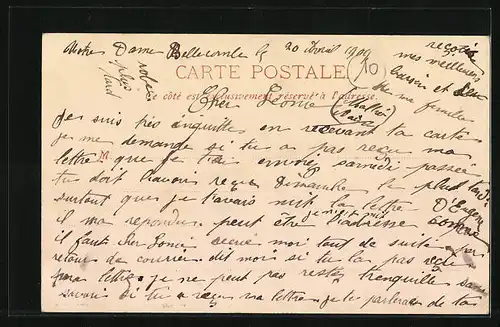 Notre Dame Bellecombe le 20 avril 1909
reçois
mes meilleurs
baisers et
ma famille
plus
tard
CARTE POSTALE
Ce côté est exclusivement réservé à l'adresse.
Cher
Je suis très inquiette en recevant ta carte
je me demande si tu a pas reçu ma
M
lettre que je t'ai envoyé samedi passée
tu doit l'avoir reçu Dimanche le plus tard
surtout que je l'avais mit la lettre D'Eugene
il ma repondu peut être l'adresse
il faut cher moi tout de suite par
retour de courrier dit moi si tu la pas reçu
ma lettre je ne peut pas rester trenquille sans
savoir si tu a reçu ma lettre je te parlerai de ta